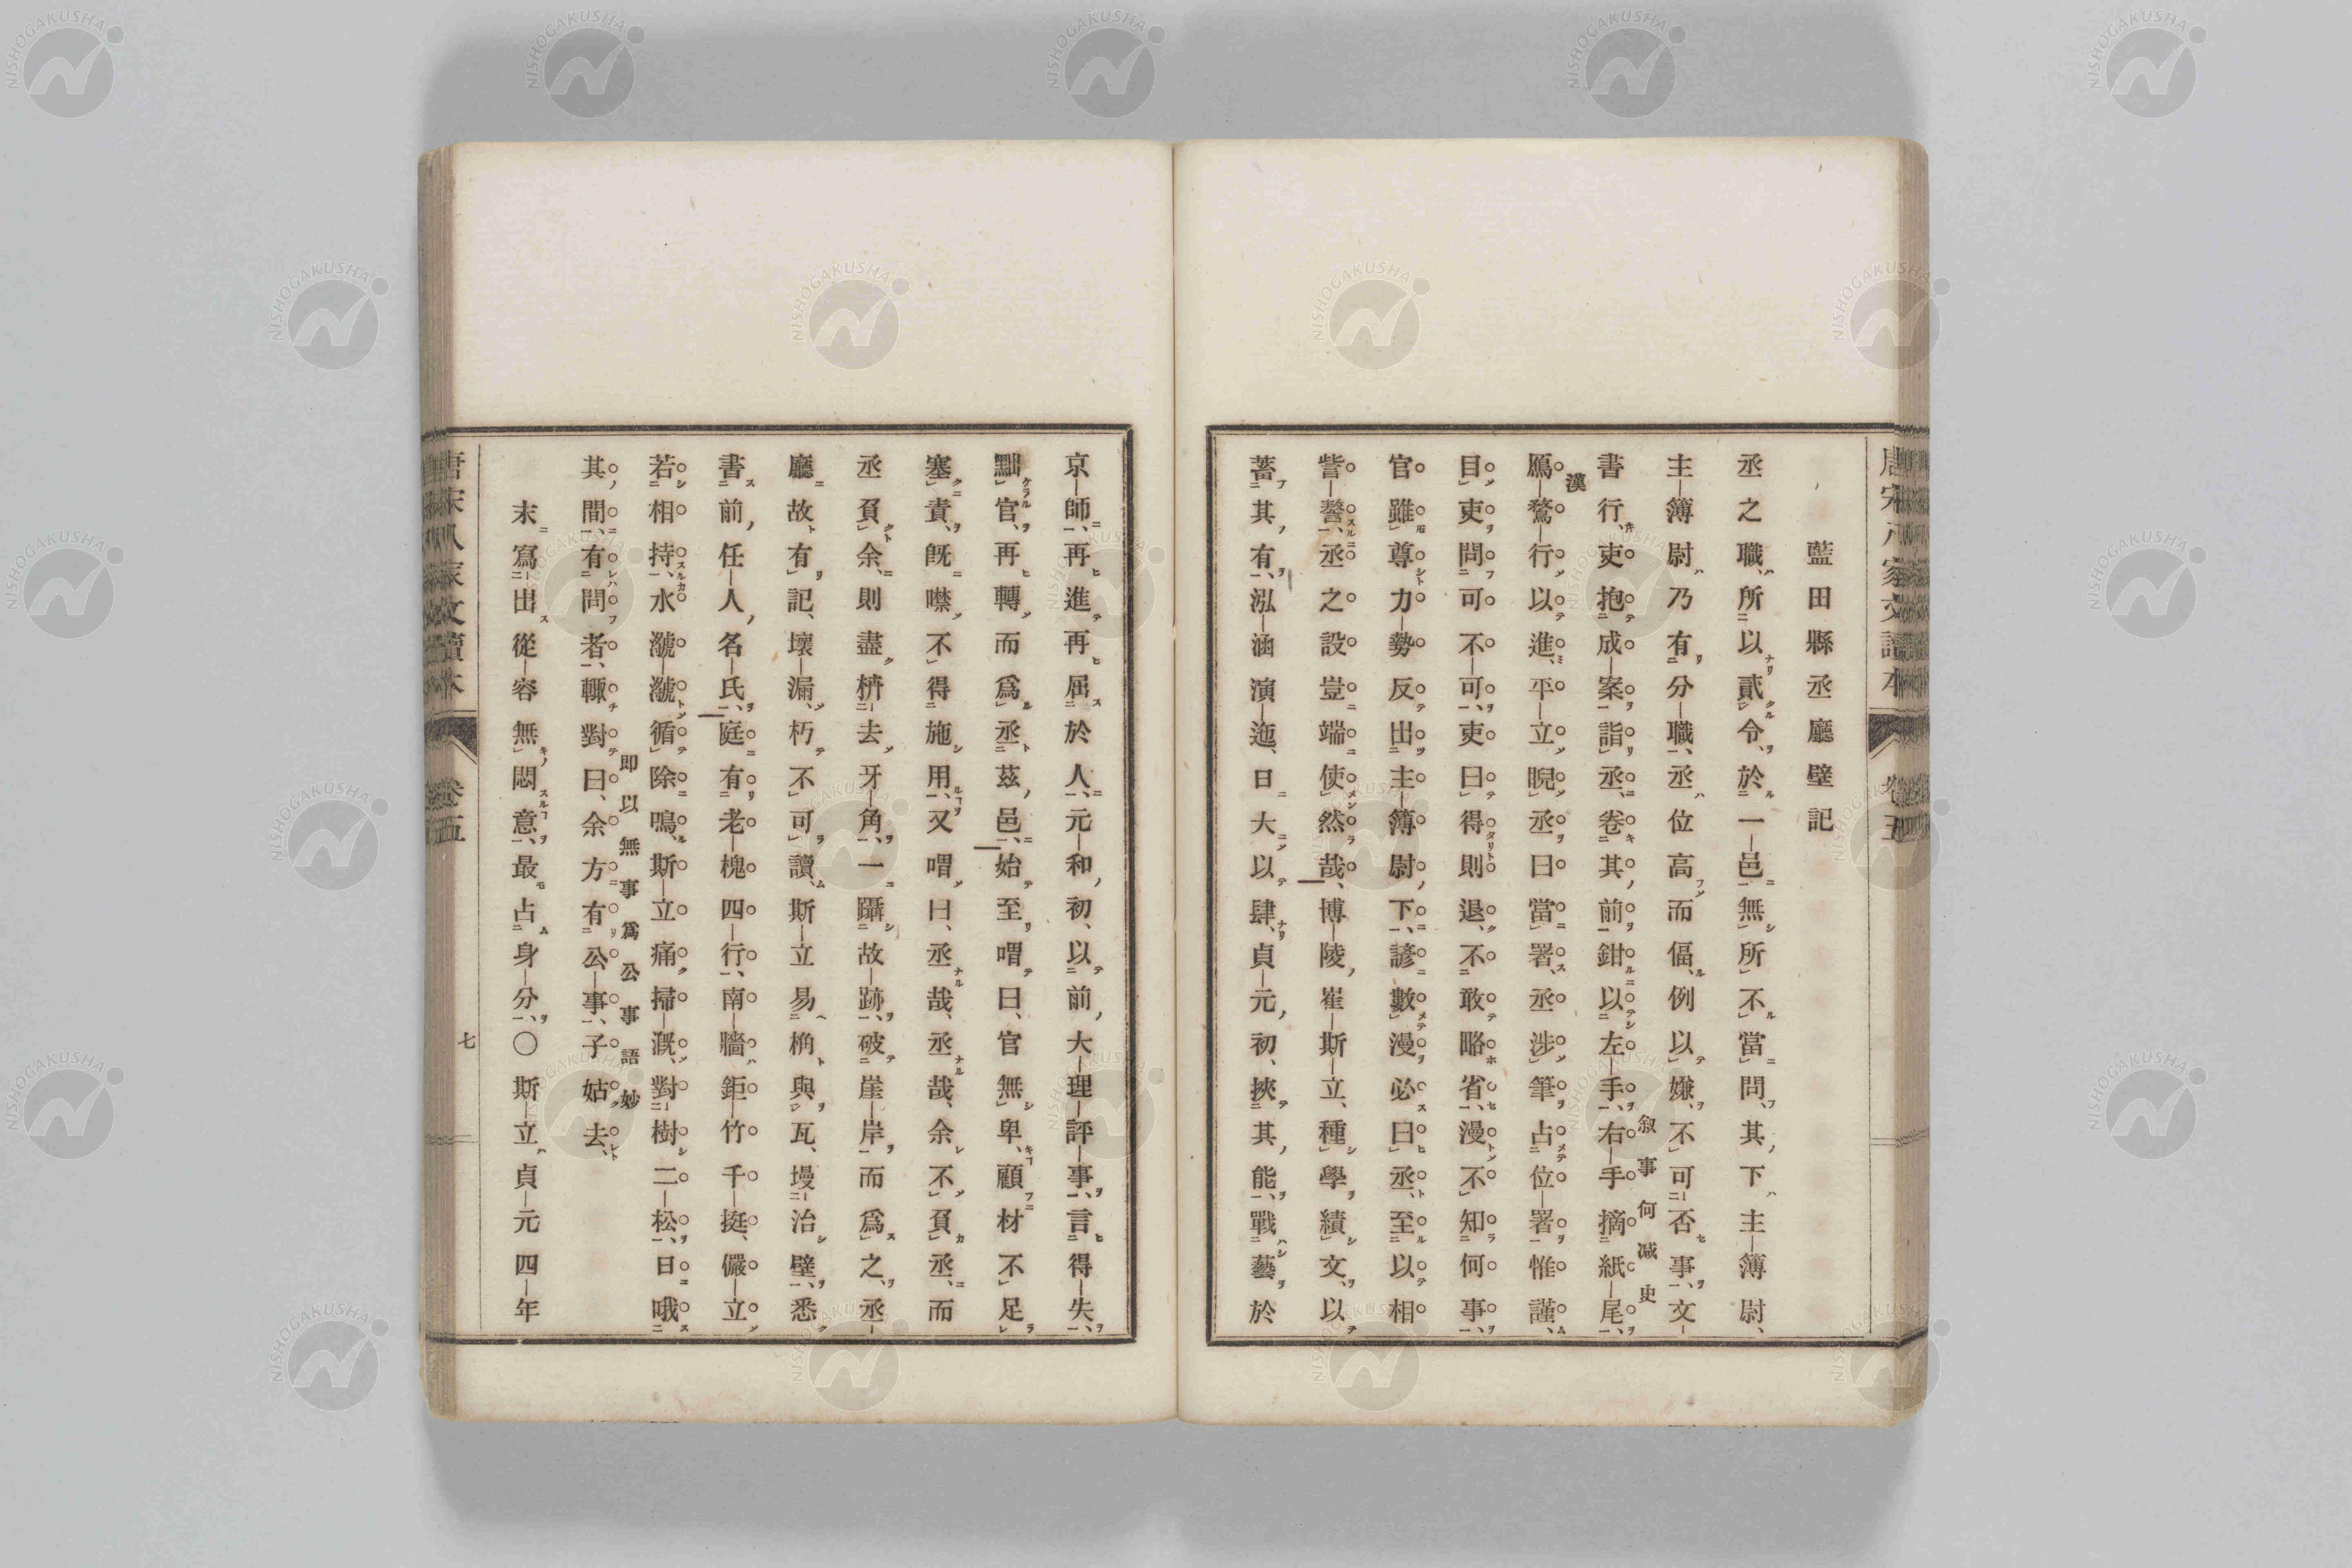 藍田縣丞廳壁記
丞之職、所以貳令、於一邑無所不當問、其下主簿尉、
主簿尉乃有分職、丞位高而偪、例以嫌、不可否事、文
書行、吏抱成案詣丞、卷其前、鉗以左手、右手摘紙尾、
叙事何减史漢
鴈鶩行以進、平立睨丞曰當署、丞涉筆占位署惟謹、
目吏問可不可、吏曰得則退、不敢略省、漫不知何事、
官雖尊力勢反出主簿尉下、諺數漫必曰丞、至以相
訾謷、丞之設豈端使然哉、博陵崔斯立、種學績文、以
蓄其有、泓涵演迤、日大以肆、貞元初、挾其能、戰藝於
京師、再進再屈於人、元和初、以前大理評事、言得失、
黜官、再轉而爲丞茲邑、始至喟曰、官無卑、顧材不足
塞責、旣噤不得施用、又喟曰、丞哉、丞哉、余不負丞、而
丞負余、則盡枿去牙角、一躡故跡、破崖岸而爲之、丞
廳故有記、壞漏、朽不可讀、斯立易桷與瓦、墁治壁、悉
書前任人名氏、庭有老槐四行、南牆鉅竹千挺、儼立
若相持、水㶁㶁循除鳴、斯立痛掃漑、對樹二松、日哦
其間、有問者、輒對曰、余方有公事、子姑去、
即以無事爲公事語妙
末寫出從容無悶意、最占身分、〇斯立貞元四年
唐宋八家文讀本
卷五
七
唐宋八家文讀本
卷五
NISHOGAKUSHA